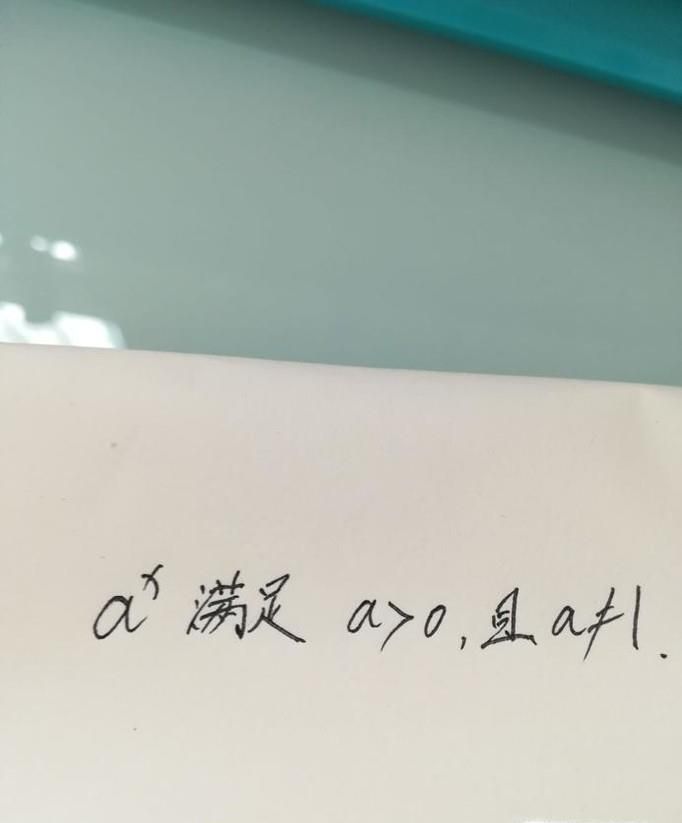 aˣ 满足 a>0,且 a≠1.